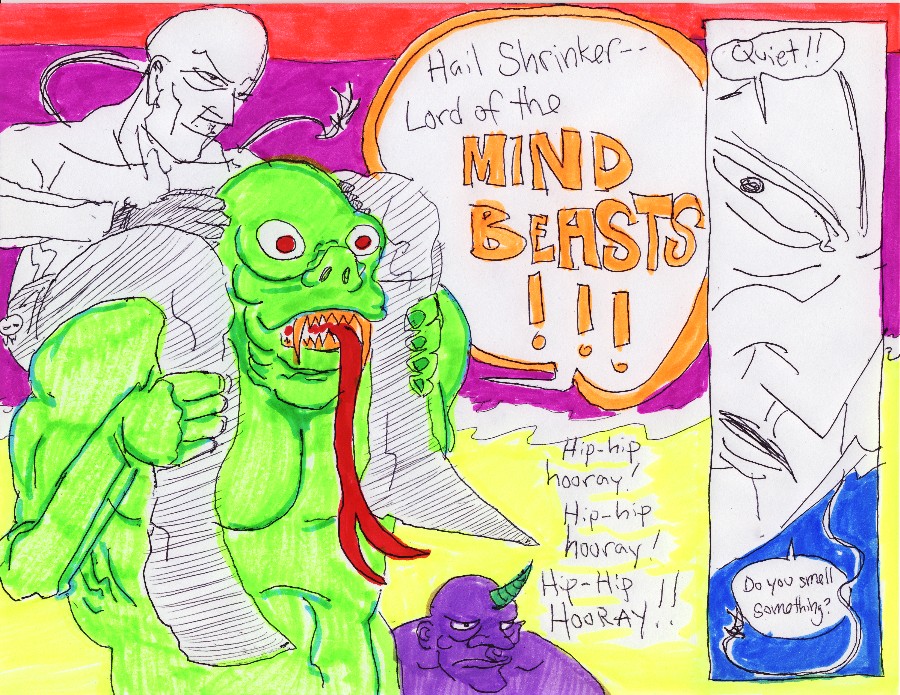 Hail Shrinker--
Lord of the
MIND
BEASTS
!!!
Quiet!!
Hip-hip
hooray!
Hip-hip
hooray!
Hip-Hip
HOORAY!!
Do you smell
something?